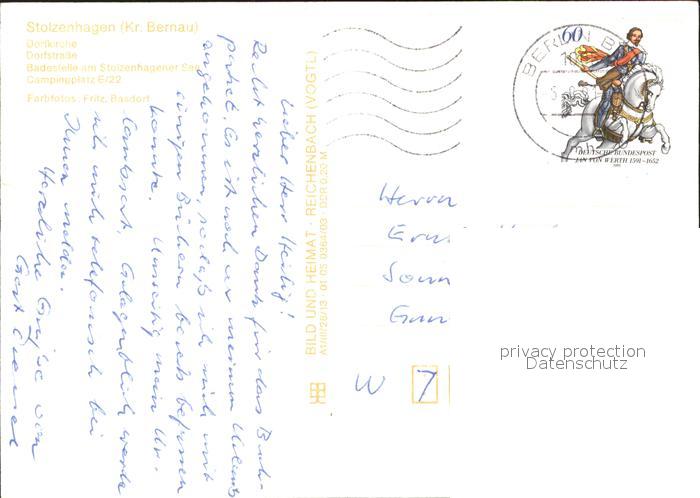 Stolzenhagen (Kr. Bernau)
Dorfkirche
Dorfstraße
Badestelle am Stolzenhagener See
Campingplatz E/22
Farbfotos: Fritz, Basdorf
Lieber Herr Heilig!
Recht herzlichen Dank für das Buch-
paket. Es ist noch vor meinem Urlaub
angekommen, sodaß ich mich mit
einigen Büchern bereits befassen
konnte. Unseitig mein Ur-
laubsort. Gelegentlich werde
ich mich telefonisch bei
Ihnen melden.
Herzliche Grüße von
Gert
BILD UND HEIMAT · REICHENBACH (VOGTL)
A1/III/26/13 01 05 0364/03 DDR 0,20 M
BERLIN
60
DEUTSCHE BUNDESPOST
JAN VON WERTH 1591–1652
Herrn
W 7
privacy protection
Datenschutz